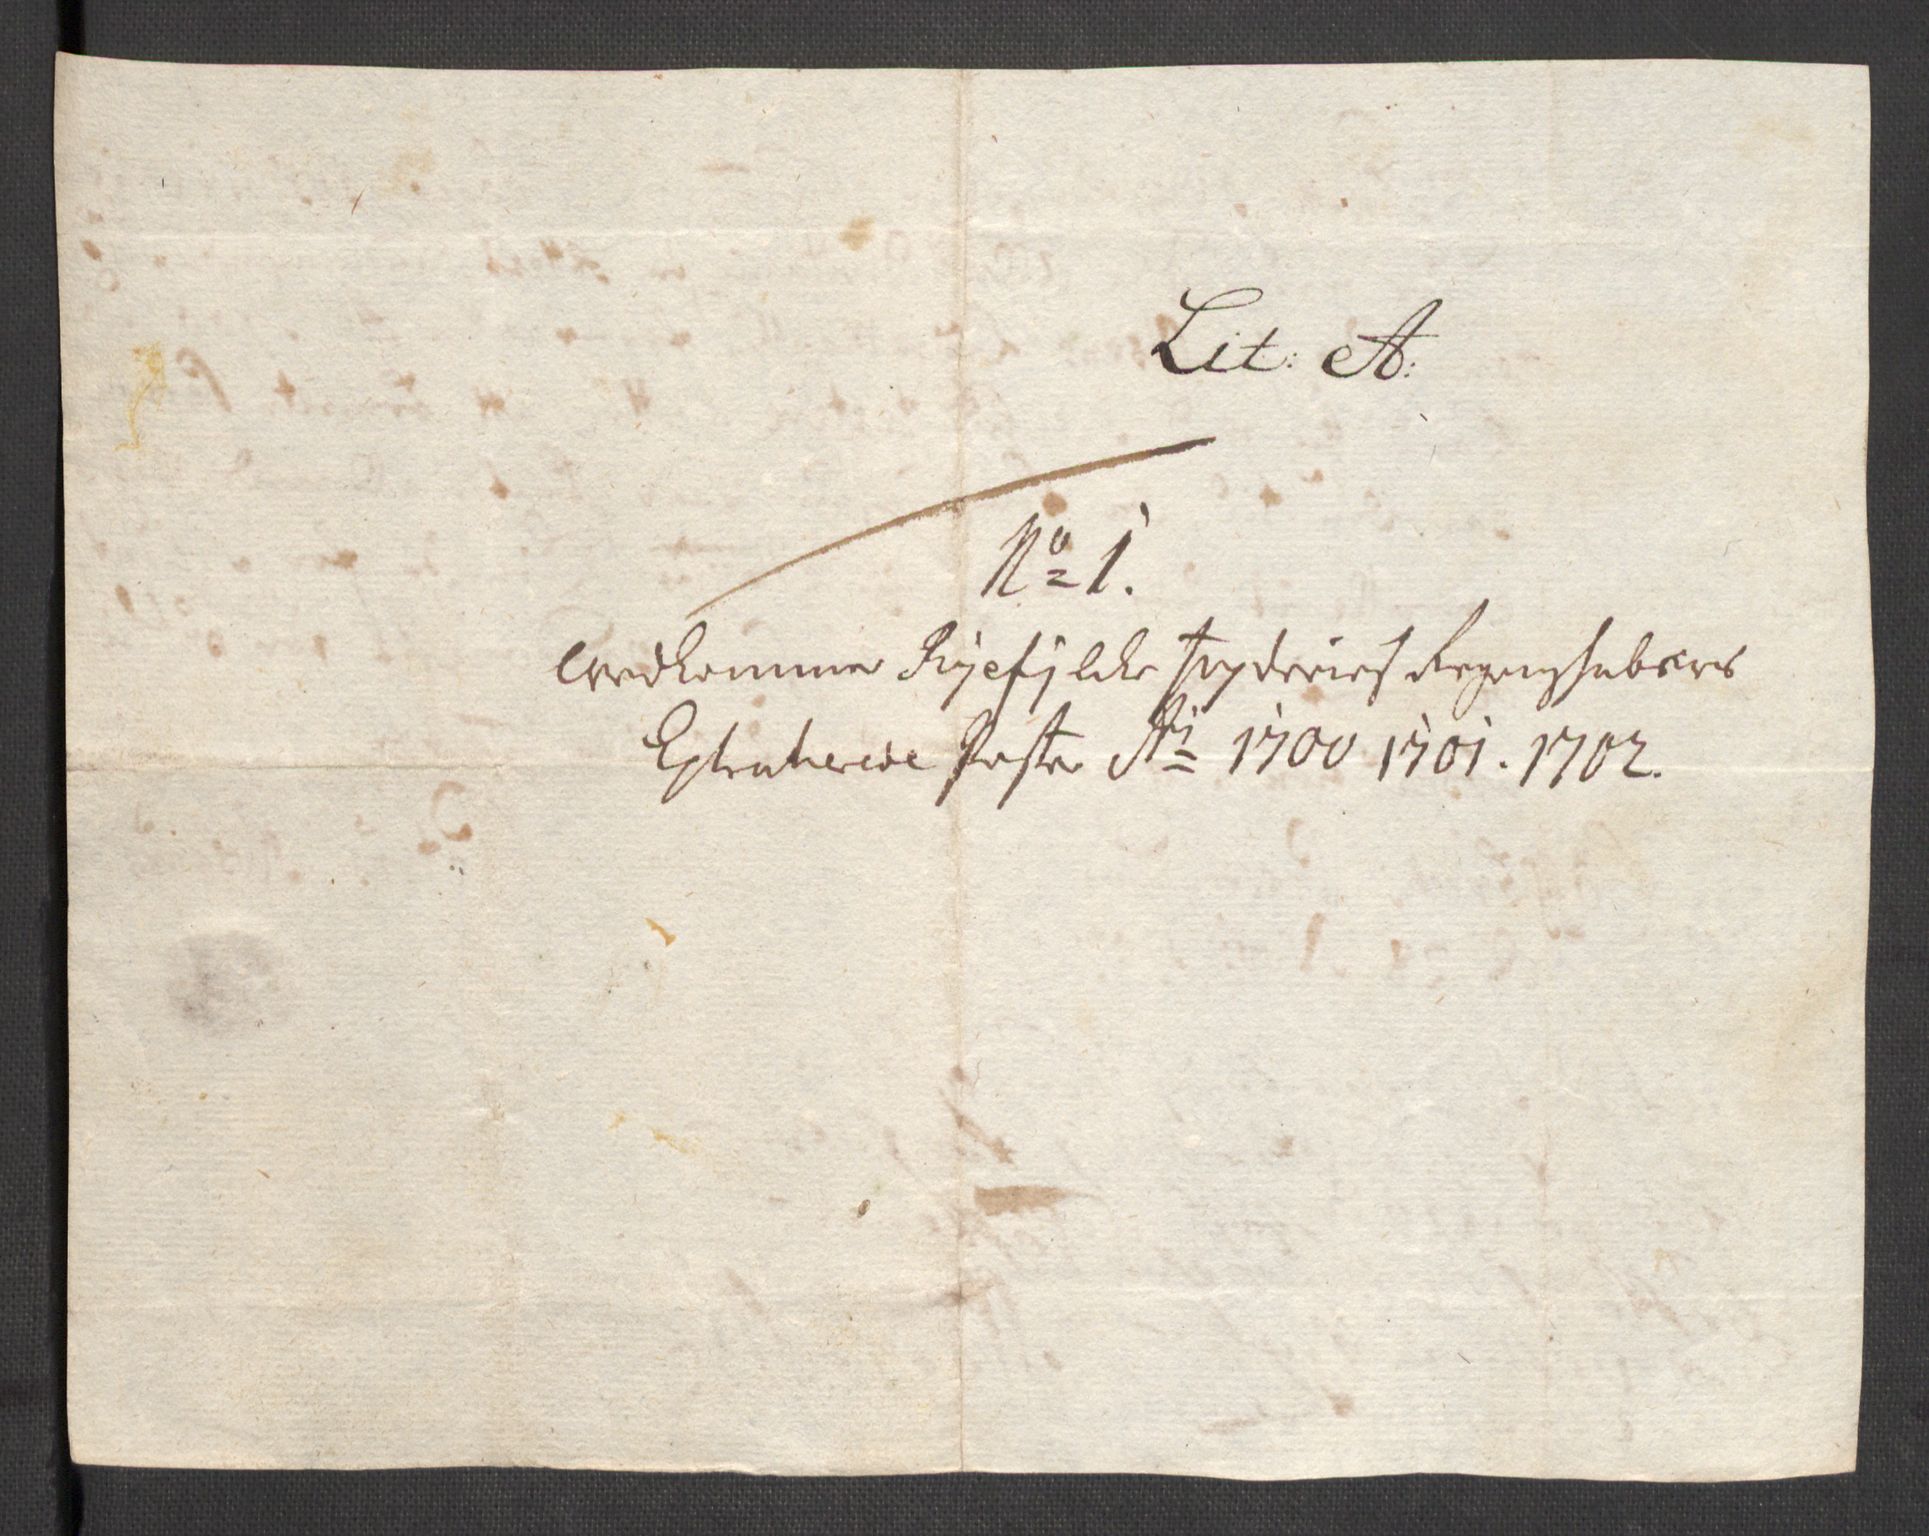 Lit: A:
No 1.
Vedkommer Ryefylche fogderies Regenschabers
Extraherede Poster Ao 1700 1701. 1702.